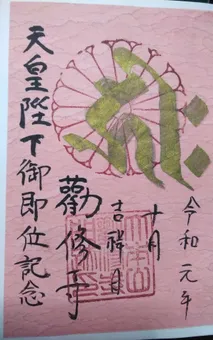 令和元年
十月
吉祥日
勸修寺
天皇陛下御即位記念